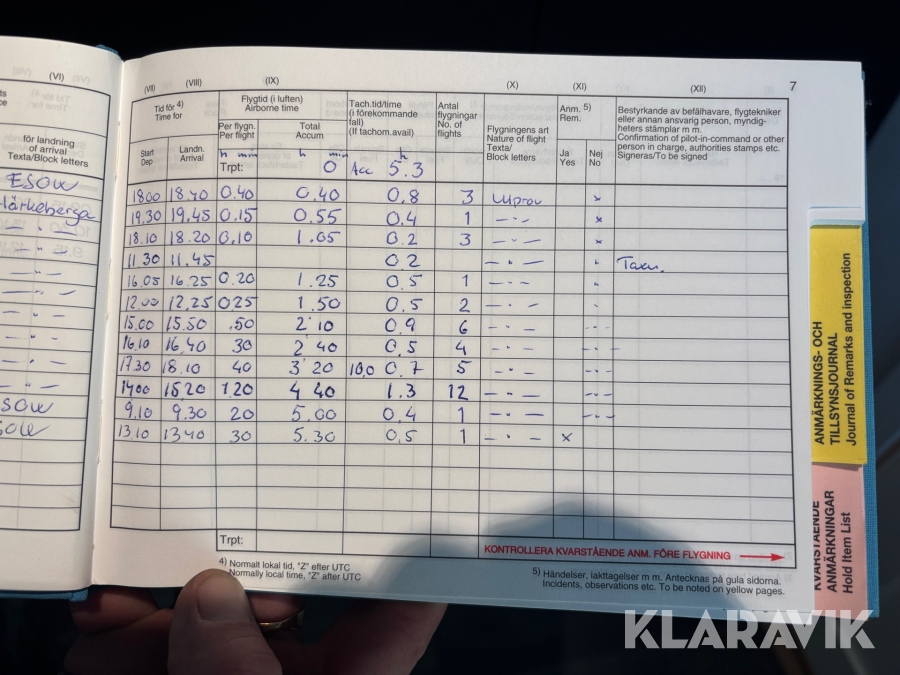 (VI) (VII) (VIII) (IX) (X) (XI) (XII) 7
för landning
of arrival
Texta/Block letters
Tid för 4)
Time for
Start
Dep
Landn.
Arrival
Flygtid (i luften)
Airborne time
Per flygn.
Per flight
Total
Accum
h min h min
Tach.tid/time
(i förekommande
fall)
(If tachom.avail)
h
Antal
flygningar
No. of
flights
Flygningens art
Nature of flight
Texta/
Block letters
Anm. 5)
Rem.
Ja
Yes
Nej
No
Bestyrkande av befälhavare, flygtekniker
eller annan ansvarig person, myndig-
heters stämplar m m.
Confirmation of pilot-in-command or other
person in charge, authorities stamps etc.
Signeras/To be signed
Trpt: 0 Acc 5.3
ESOW 18.00 18.40 0.40 0.40 0.8 3 Utprov x
Härkeberga 19.30 19.45 0.15 0.55 0.4 1 - " - x
- " - 18.10 18.20 0,10 1.05 0.2 3 - " - x
- " - 11.30 11.45 0.2 - " - " Taxn.
- " - 16.05 16.25 0.20 1.25 0.5 1 - " - "
- " - 12.00 12.25 025 1.50 0.5 2 - " - "
- " - 15.00 15.50 .50 2 10 0.9 6 - " - - " -
- " - 16.10 16.40 30 2 40 0.5 4 - " - - " -
- " - 17.30 18.10 40 3 20 10,0 0.7 5 - " - - " -
- " - 1400 15 20 1 20 4 40 1.3 12 - " - - " -
ESOW 9.10 9.30 20 5.00 0.4 1 - " - - " -
ESOW 13.10 13 40 30 5.30 0.5 1 - " - x
Trpt:
KONTROLLERA KVARSTÅENDE ANM. FÖRE FLYGNING
4) Normalt lokal tid, "Z" efter UTC
Normally local time, "Z" after UTC
5) Händelser, iakttagelser m m. Antecknas på gula sidorna.
Incidents, observations etc. To be noted on yellow pages.
ANMÄRKNINGS- OCH
TILLSYNSJOURNAL
Journal of Remarks and inspection
KVARSTÅENDE
ANMÄRKNINGAR
Hold Item List
KLARAVIK